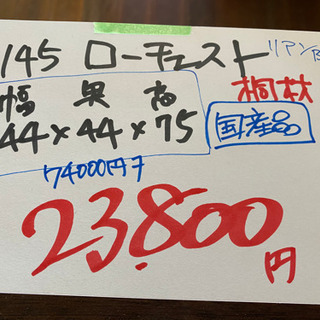 145 ローチェスト リアン
幅 奥 高 桐材
44×44×75 国産品
74000円
23.800
円